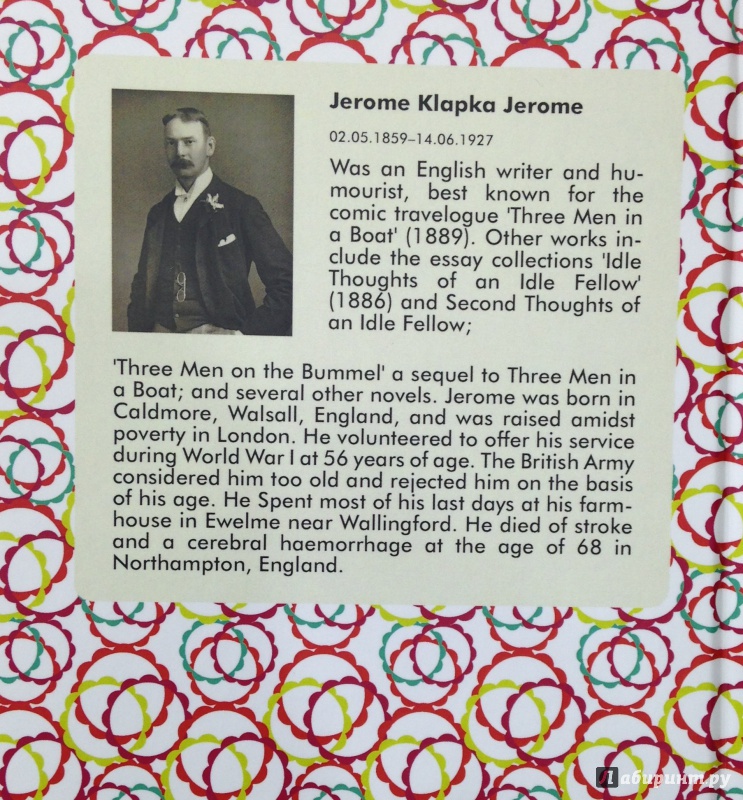 Jerome Klapka Jerome
02.05.1859–14.06.1927
Was an English writer and hu-
mourist, best known for the
comic travelogue 'Three Men in
a Boat' (1889). Other works in-
clude the essay collections 'Idle
Thoughts of an Idle Fellow'
(1886) and Second Thoughts of
an Idle Fellow;
'Three Men on the Bummel' a sequel to Three Men in
a Boat; and several other novels. Jerome was born in
Caldmore, Walsall, England, and was raised amidst
poverty in London. He volunteered to offer his service
during World War I at 56 years of age. The British Army
considered him too old and rejected him on the basis
of his age. He Spent most of his last days at his farm-
house in Ewelme near Wallingford. He died of stroke
and a cerebral haemorrhage at the age of 68 in
Northampton, England.
Лабиринт.ру